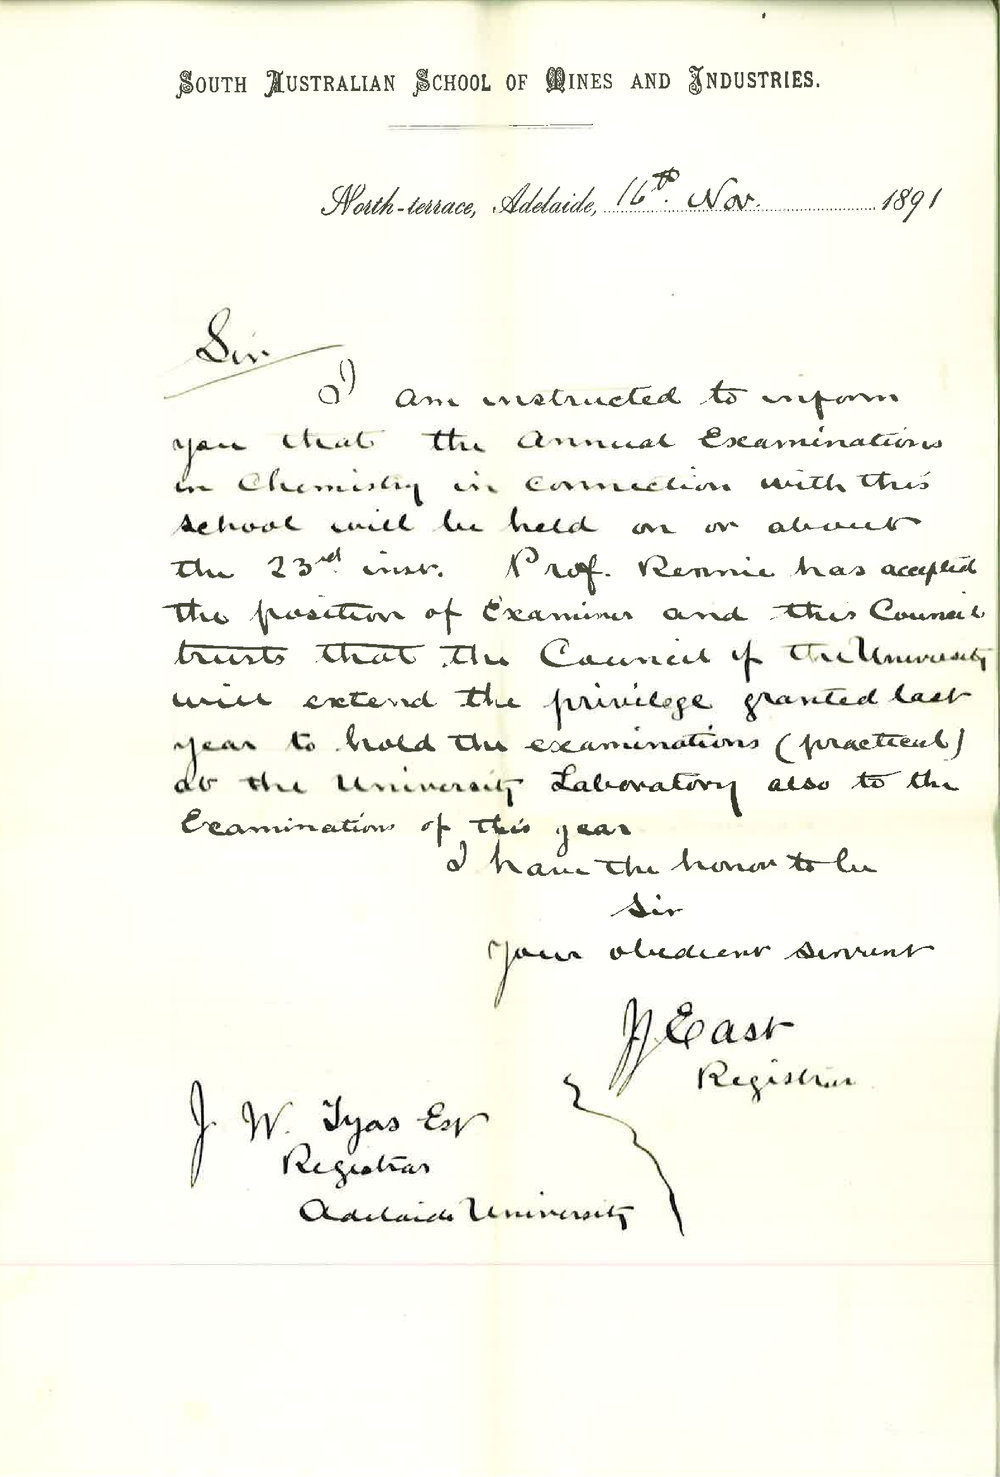 SOUTH AUSTRALIAN SCHOOL OF MINES AND INDUSTRIES.
North-terrace, Adelaide, 16th. Nov. 1891
Sir
I am instructed to inform
you that the Annual Examinations
in Chemistry in connection with this
school will be held on or about
the 23rd inst. Prof. Rennie has accepted
the position of Examiner and this Council
trusts that the Council of the University
will extend the privilege granted last
year to hold the examinations (practical)
at the University Laboratory also to the
Examinations of this year
I have the honor to be
Sir
Your obedient servant
JJ East
Registrar
J. W. Tyas Esq
Registrar
Adelaide University